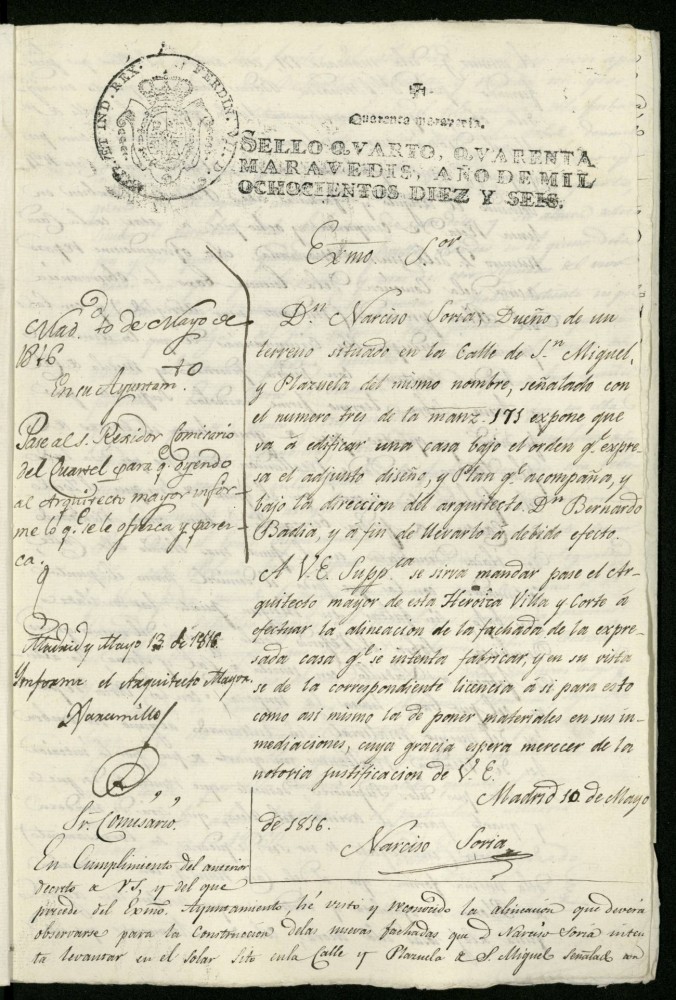 FERDIN. VII. D. G.
ET IND. REX.
Quarenta maravedis.
SELLO QVARTO, QVARENTA
MARAVEDIS, AÑO DE MIL
OCHOCIENTOS DIEZ Y SEIS.
Exmo. S.or
D.n Narciso Soria, Dueño de un
terreno situado en la Calle de S.n Miguel,
y Plazuela del mismo nombre, señalado con
el numero tres de la manz. 171 expone que
vá á edificar una casa bajo el orden q.e expre-
sa el adjunto diseño, y Plan q.e acompaña, y
bajo la direccion del arquitecto D.n Bernardo
Badia, y á fin de llevarlo á debido efecto.
A V.E. Supp.ca se sirva mandar pase el Ar-
quitecto mayor de esta Heroica Villa y Corte á
efectuar la alineacion de la fachada de la expre-
sada casa q.e se intenta fabricar, y en su vista
se de la correspondiente licencia á si para esto
como asi mismo la de poner materiales en sus in-
mediaciones, cuya gracia espera merecer de la
notoria justificacion de V.E.
Madrid 10 de Mayo
de 1816.
Narciso Soria
Mad.d 10 de Mayo de
1816
En su Ayuntam.to
Pase al S. Regidor Comisario
del Quartel para q.e oyendo
al Arquitecto mayor infor-
me lo q.e se le ofrezca y parez-
ca.
Madrid y Mayo 13 de 1816.
Ynforme el Arquitecto Mayor.
S.r Comisario.
En Cumplimiento del anterior
Decreto de V.S. y del que
precede del Exmo. Ayuntamiento, hé visto y reconocido la alineacion que deverá
observarse para la Construccion delas nuevas fachadas que D. Narciso Soria inten
ta levantar en el Solar Sito enla Calle y Plazuela de S. Miguel señalado con